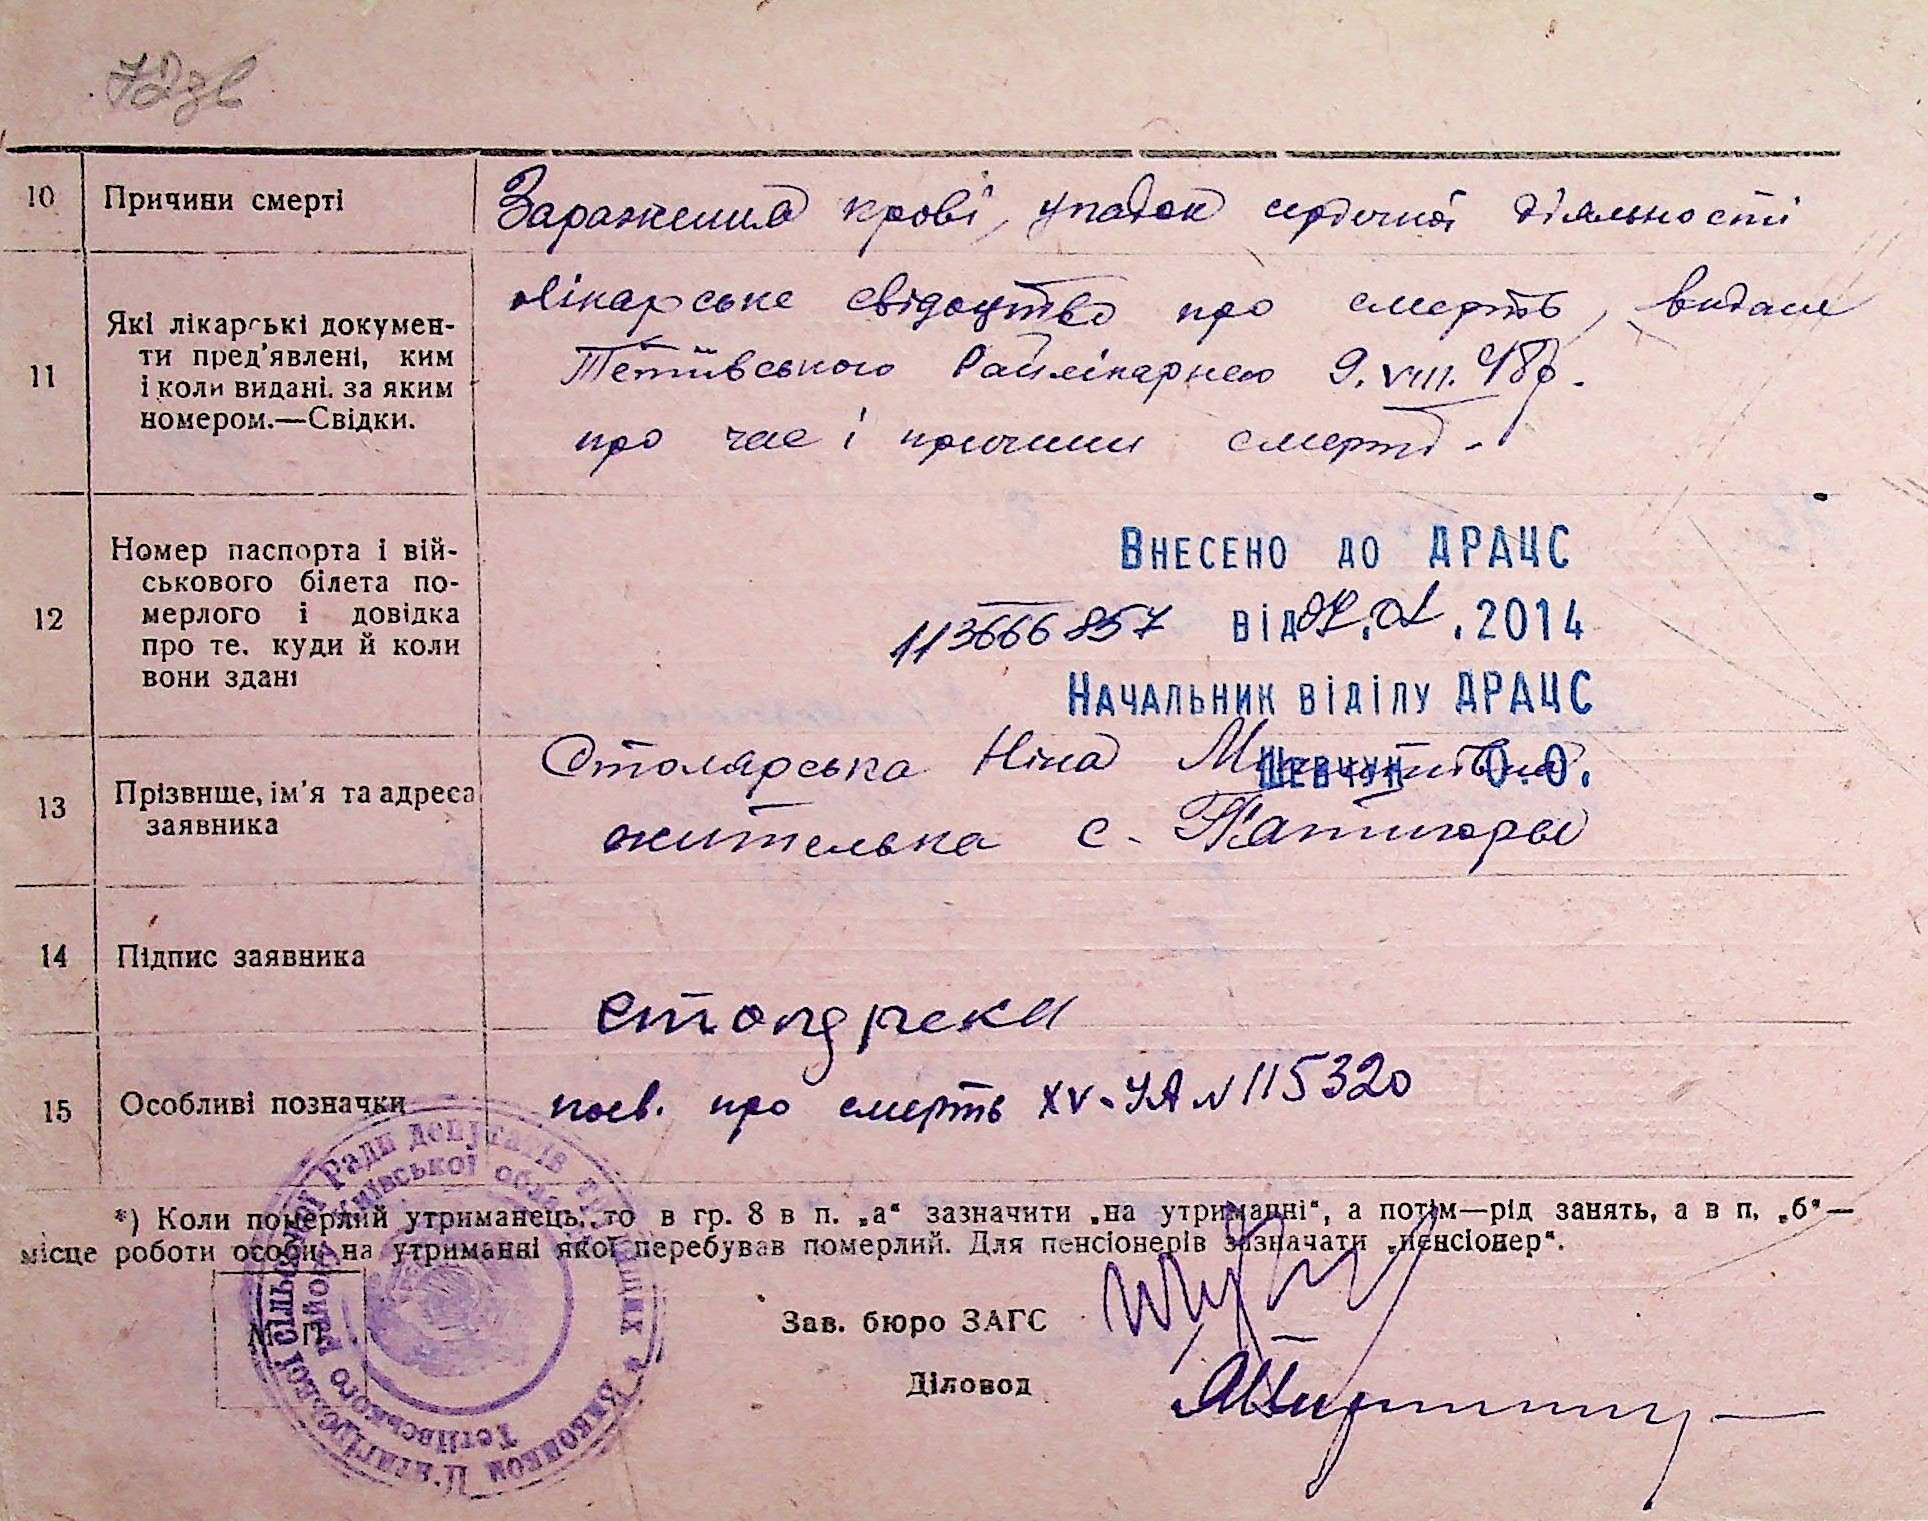 10 Причини смерті Зараження крові, упадок сердечної діяльності
11 Які лікарські докумен-
ти пред'явлені, ким
і коли видані, за яким
номером.—Свідки.
Лікарське свідоцтво про смерть, видане
Тетіївського Райлікарнею 9.VIII.48р.
про час і причини смерті.
12 Номер паспорта і вій-
ськового білета по-
мерлого і довідка
про те, куди й коли
вони здані
Внесено до ДРАЦС
113666857 від .2014
Начальник відділу ДРАЦС
Шевчук О.О.
13 Прізвище, ім'я та адреса
заявника
Столярська Ніна
жителька с. П'ятигори
14 Підпис заявника
15 Особливі позначки посв. про смерть XV-УА N 115320
*) Коли померлий утриманець, то в гр. 8 в п. „а" зазначити „на утриманні", а потім—рід занять, а в п. „б"—
місце роботи особи, на утриманні якої перебував померлий. Для пенсіонерів зазначати „пенсіонер".
М. П.
Зав. бюро ЗАГС
Діловод
Виконком П'ятигірської сільської Ради депутатів трудящих
Тетіївського району Київської області